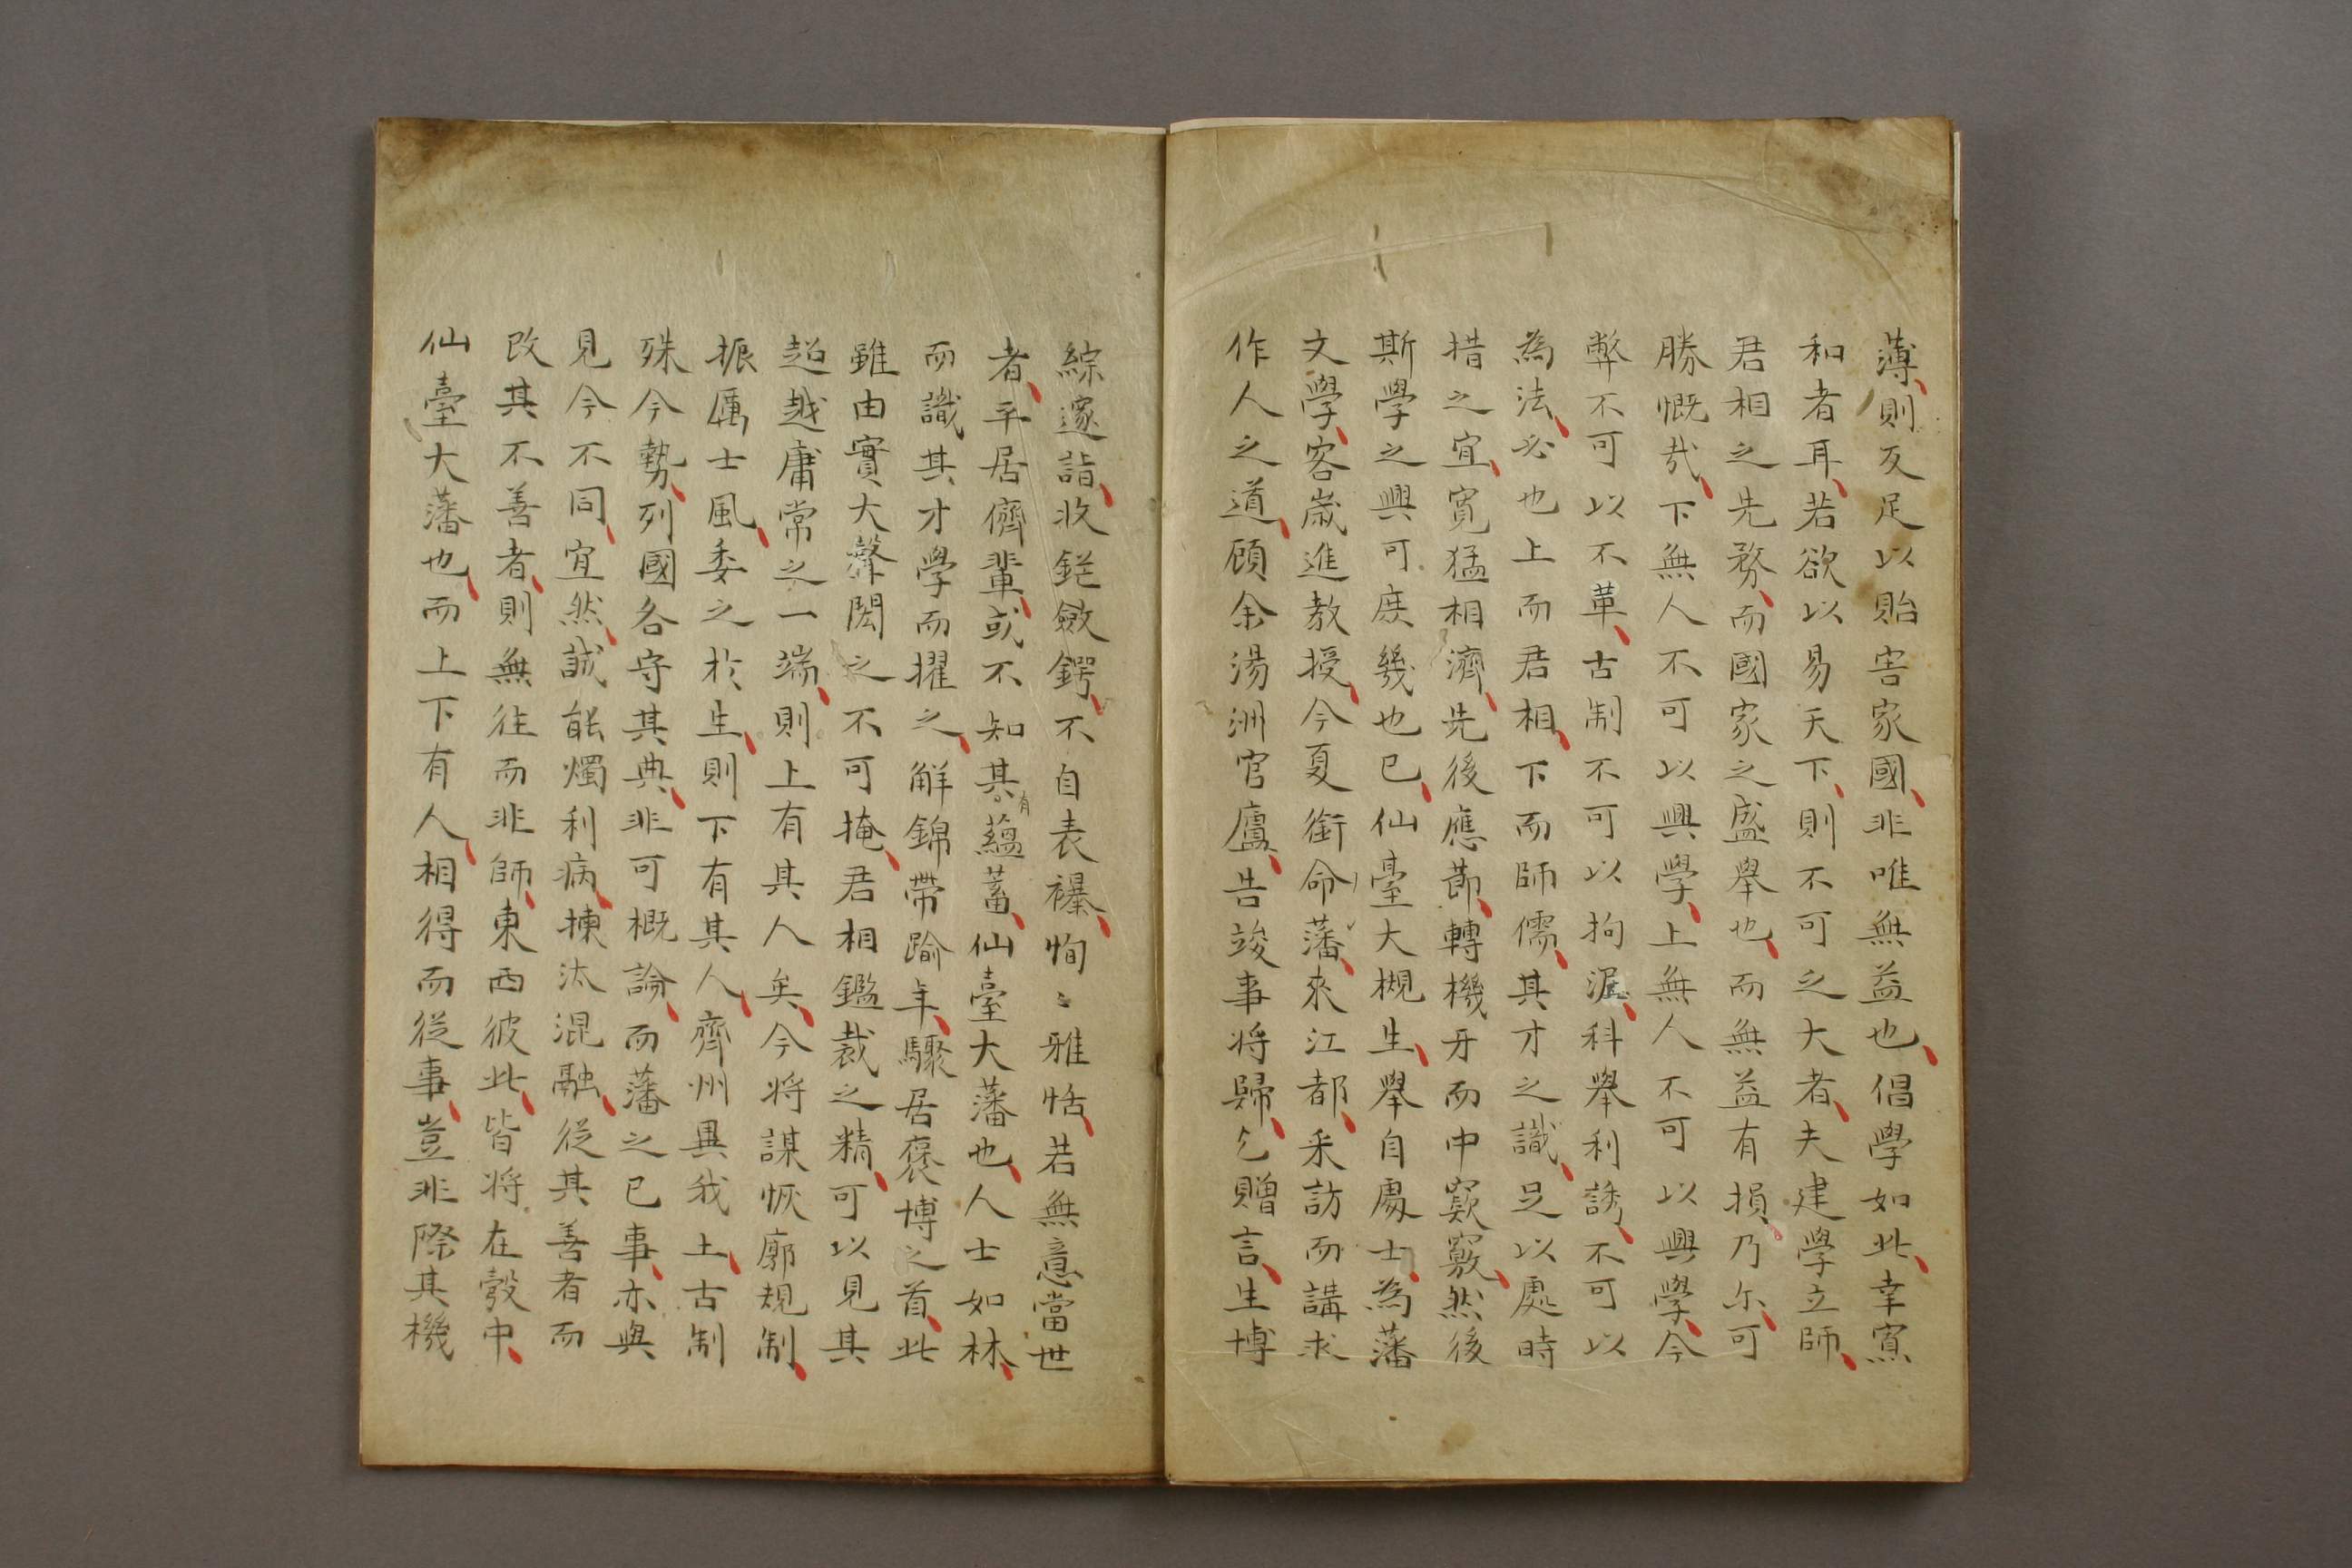 薄、則反足以貽害家國、非唯無益也、倡學如此、幸寡
和者耳、若欲以易天下、則不可之大者、夫建學立師、
君相之先務、而國家之盛舉也、而無益有損乃尓、可
勝慨哉、下無人不可以興學、上無人不可以興學、今
弊不可以不革、古制不可以拘泥、科舉利誘、不可以
為法、必也上而君相、下而師儒、其才之識、足以處時
措之宜、寬猛相濟、先後應節、轉機牙而中窾竅、然後
斯學之興可庶幾也已、仙臺大槻生、舉自處士、為藩
文學、客歲進教授、今夏銜命藩、來江都、采訪而講求
作人之道、顧余湯洲官廬、告竣事将歸、乞贈言、生博
綜邃詣、收鋩斂鍔、不自表襮、恂〻雅恬、若無意當世
者、平居儕輩、或不知其有蘊蓄、仙臺大藩也、人士如林、
而識其才學而擢之、解錦帶踰年、驟居褒博之首、此
雖由實大聲閎之不可掩、君相鑑裁之精、可以見其
超越庸常之一端、則上有其人矣、今将謀恢廓規制、
振厲士風、委之於生、則下有其人、齊州異我土、古制
殊今勢、列國各守其典、非可概論、而藩之已事、亦與
見今不同、宜然、誠能燭利病、揀汰混融、從其善者而
改其不善者、則無往而非師、東西彼此、皆将在彀中、
仙臺大藩也、而上下有人、相得而從事、豈非際其機